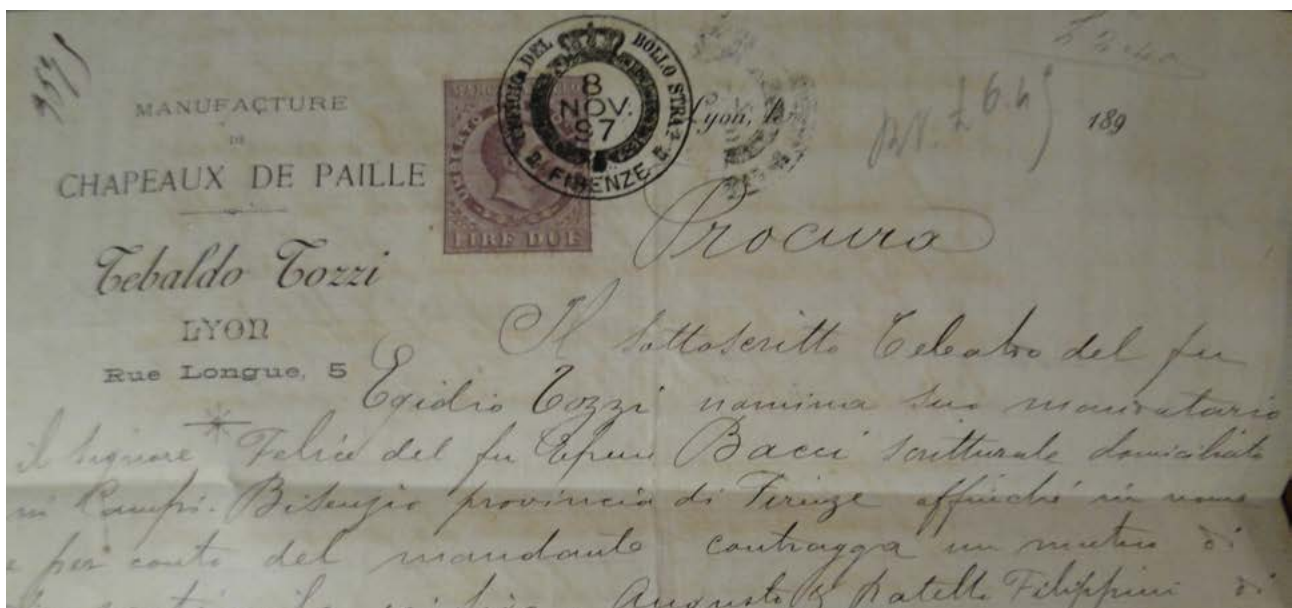 MANUFACTURE
DE
CHAPEAUX DE PAILLE
Tebaldo Tozzi
LYON
Rue Longue, 5
UFFICIO DEL BOLLO STRAZ.
8
NOV.
97
FIRENZE
LIRE DUE
Lyon, le 189
Procura
Il sottoscritto del fu
Egidio Tozzi nomina suo mandatario
il Signore Felice del fu Bacci scritturale domiciliato
in Campi-Bisenzio provincia di Firenze affinché in nome
e per conto del mandante contragga un mutuo di
Augusto & Fratello Filippini di